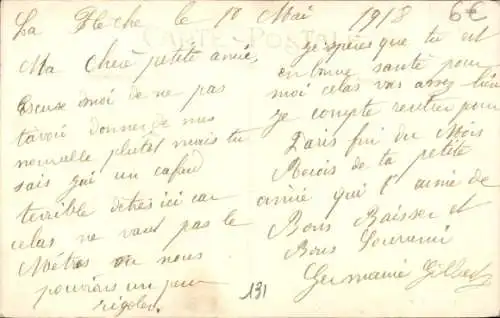 La Fleche le 10 Mai 1918
6€
CARTE POSTALE
Ma Cherè petite amie,
Escuse moi de ne pas
tavoir donner de mes
nouvelle plutot mais tu
sais j'ai un cafard
terrible detres ici car
celas ne vaut pas le
Métros ou nous
pouvions un peu
rigoler.
j'espères que tu est
en bonne santé pour
moi celas vas assez bien
je compte rentrer pour
Paris fin du Mois
Recois de ta petite
amie qui t'aime de
Bons Baisser et
Bons Souvenir
Germaine Gilbert
131